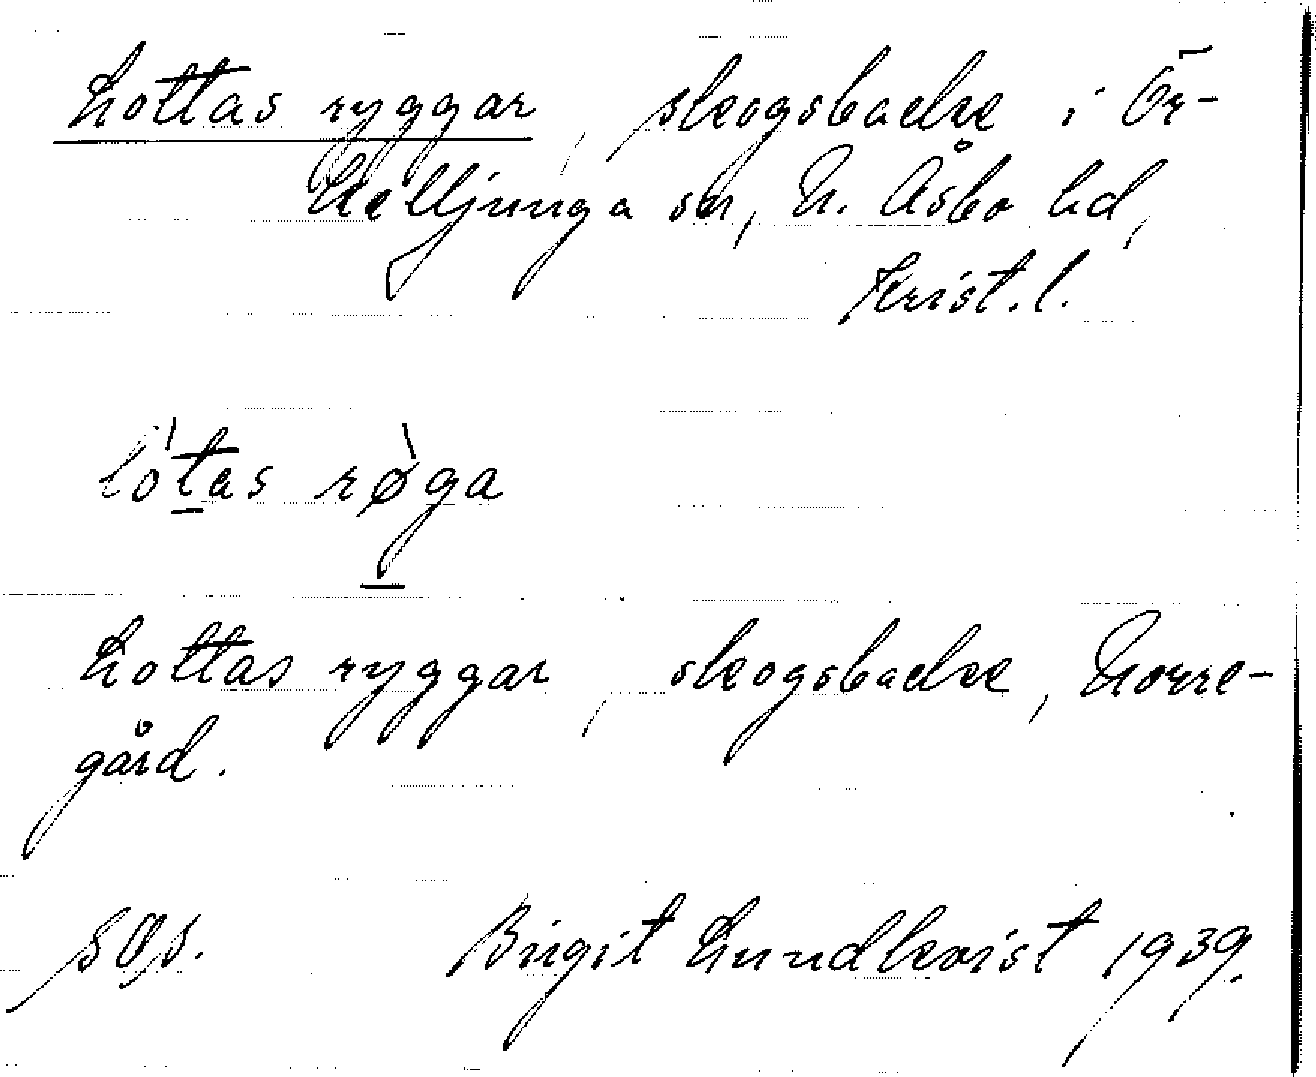 Lottas ryggar, skogsbacke i Ör-
kelljunga sn, N. Åsbo hd,
Krist. l.
lòtas rø̀ga
Lottas ryggar, skogsbacke, Norre-
gård.
Birgit Lundkvist 1939.